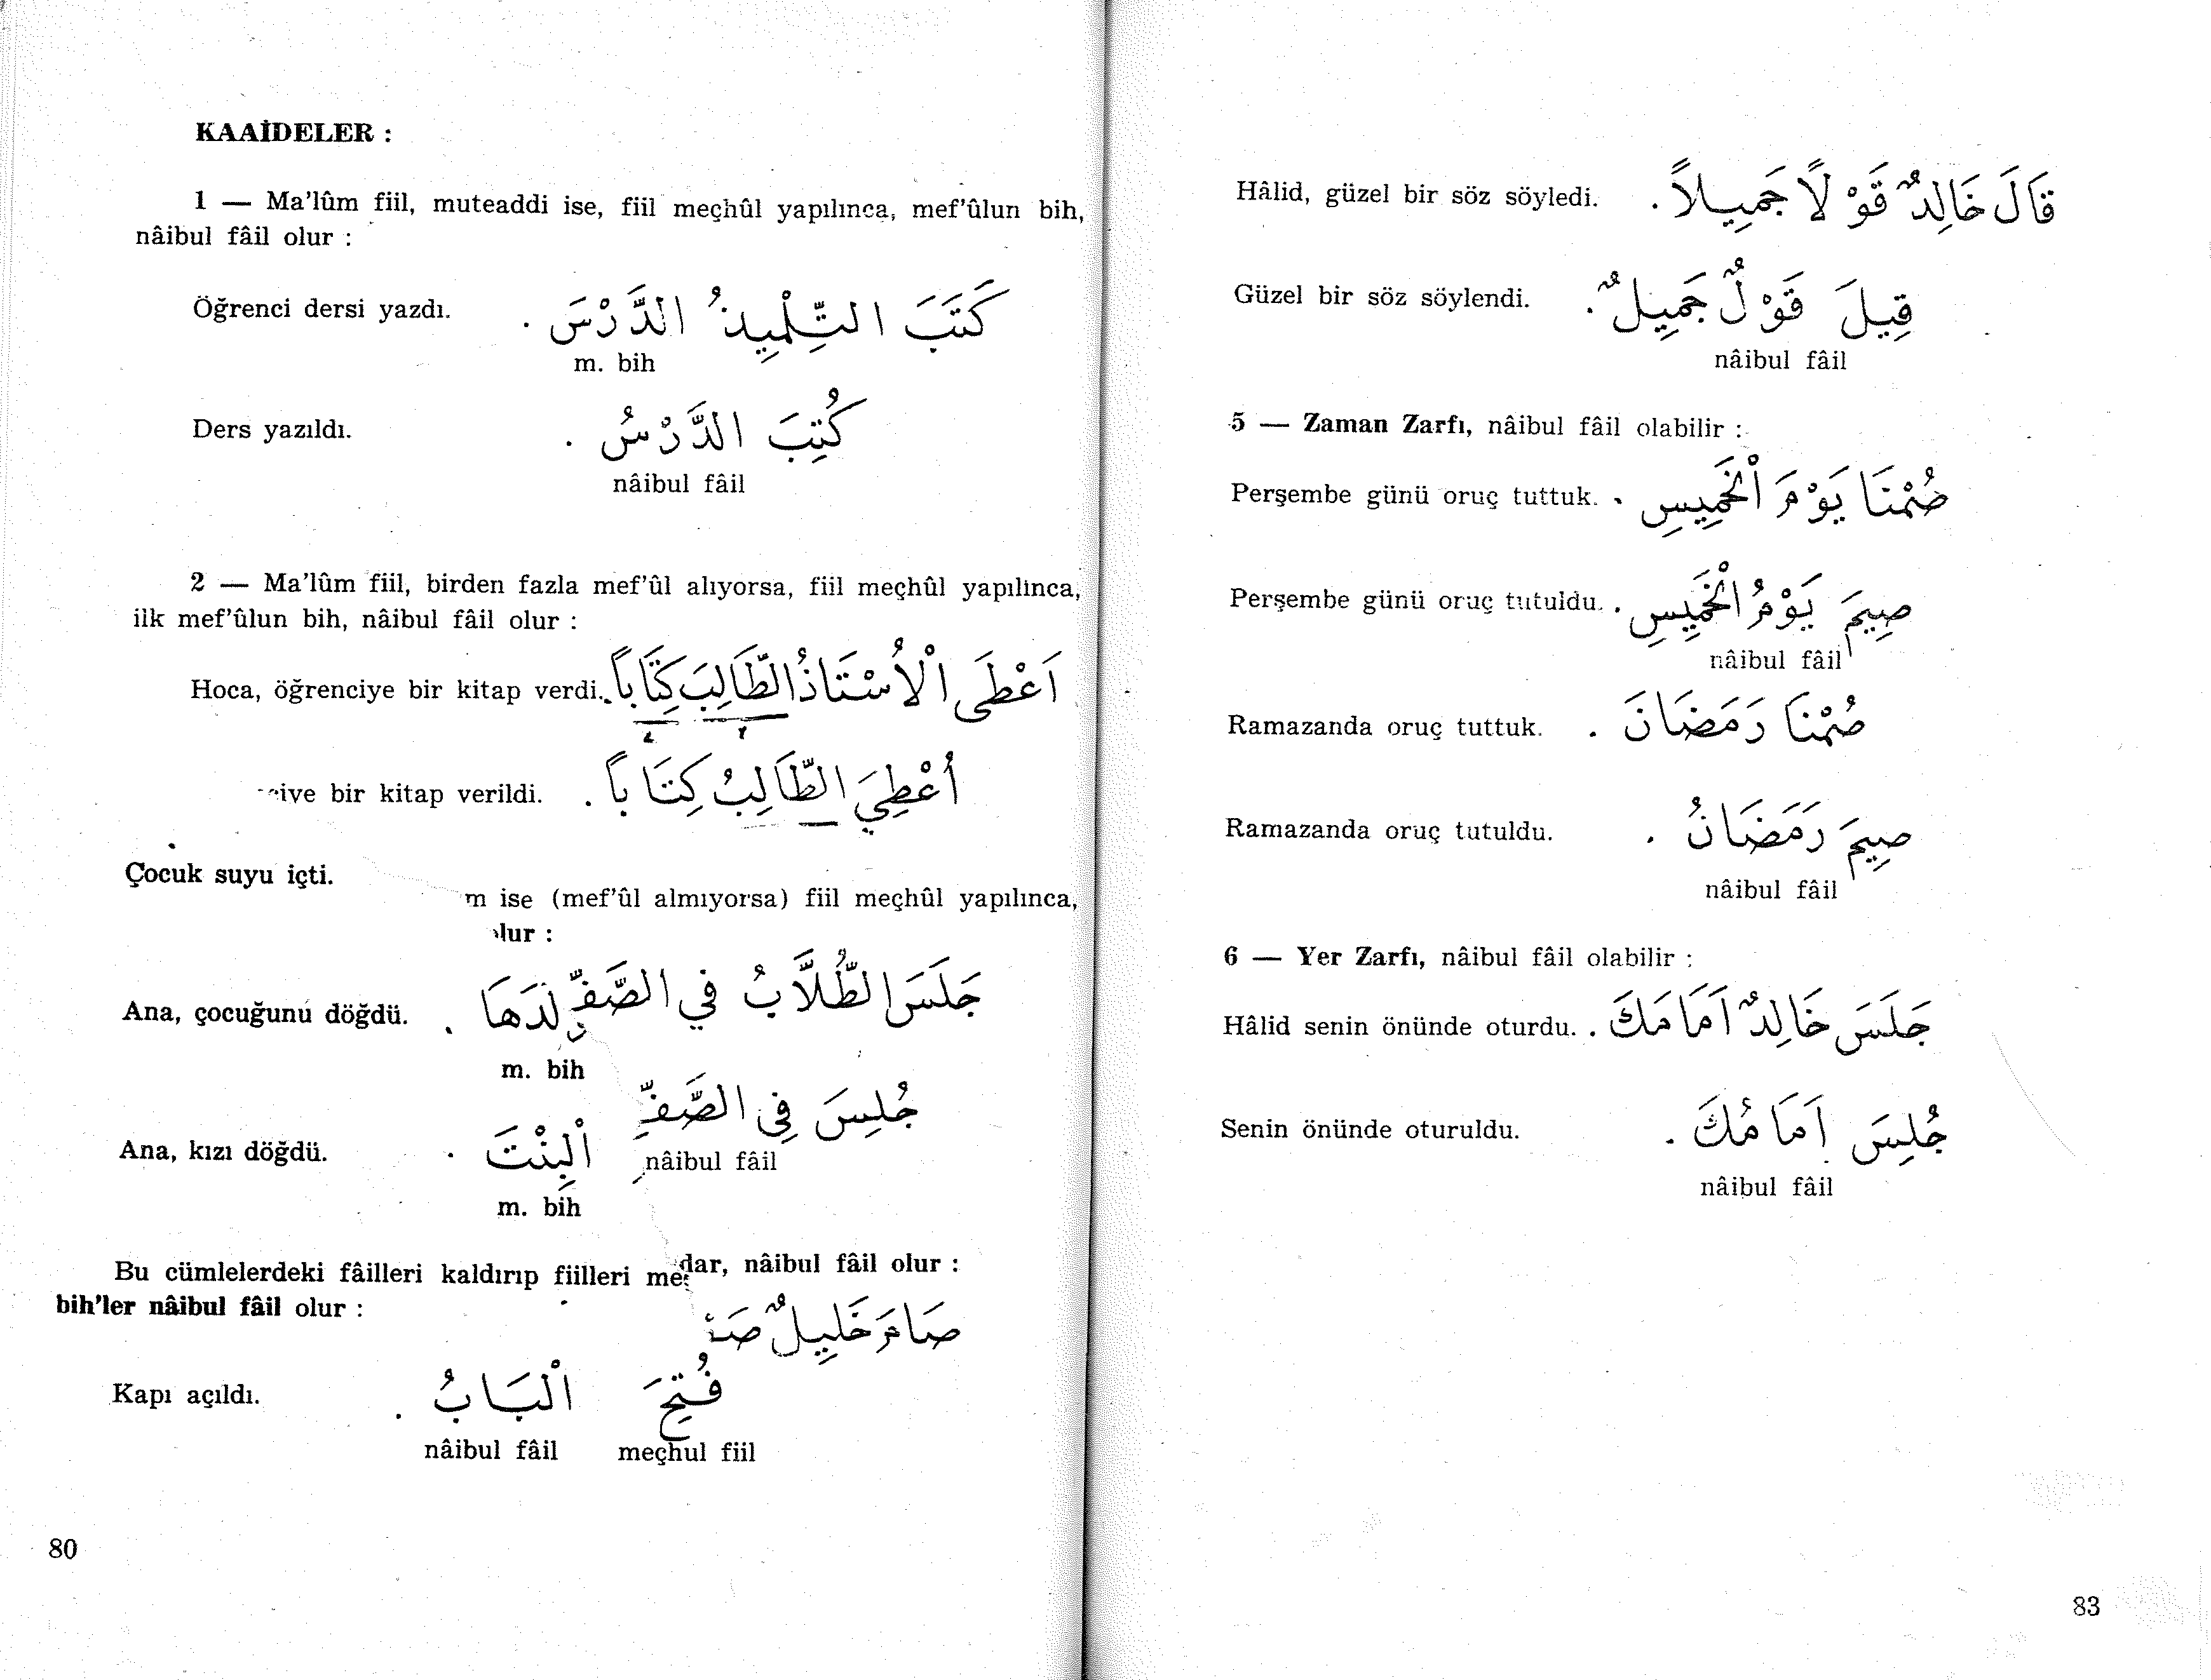 KAAİDELER :
1 — Ma'lûm fiil, muteaddi ise, fiil meçhûl yapılınca, mef'ûlun bih,
nâibul fâil olur :
Öğrenci dersi yazdı. كَتَبَ التِّلْمِيذُ الدَّرْسَ .
m. bih
Ders yazıldı. كُتِبَ الدَّرْسُ .
nâibul fâil
2 — Ma'lûm fiil, birden fazla mef'ûl alıyorsa, fiil meçhûl yapılınca,
ilk mef'ûlun bih, nâibul fâil olur :
Hoca, öğrenciye bir kitap verdi. اَعْطَى الْأُسْتَاذُ الطَّالِبَ كِتَاباً .
bir kitap verildi. أُعْطِيَ الطَّالِبُ كِتَاباً .
Çocuk suyu içti.
ise (mef'ûl almıyorsa) fiil meçhûl yapılınca,
جَلَسَ الطُّلَّابُ فِي الصَّفِّ
Ana, çocuğunu döğdü.
m. bih
جُلِسَ فِي الصَّفِّ
nâibul fâil
Ana, kızı döğdü. اَلْبِنْتَ .
m. bih
nâibul fâil olur :
Bu cümlelerdeki fâilleri kaldırıp fiilleri
bih'ler nâibul fâil olur :
صَامَ خَلِيلٌ
Kapı açıldı. فُتِحَ الْبَابُ .
nâibul fâil meçhul fiil
80
Hâlid, güzel bir söz söyledi. قَالَ خَالِدٌ قَوْلًا جَمِيلاً .
Güzel bir söz söylendi. قِيلَ قَوْلٌ جَمِيلٌ .
nâibul fâil
5 — Zaman Zarfı, nâibul fâil olabilir :
Perşembe günü oruç tuttuk. صُمْنَا يَوْمَ الْخَمِيسِ .
Perşembe günü oruç tutuldu. صِيمَ يَوْمُ الْخَمِيسِ .
nâibul fâil
Ramazanda oruç tuttuk. صُمْنَا رَمَضَانَ .
Ramazanda oruç tutuldu. صِيمَ رَمَضَانُ .
nâibul fâil
6 — Yer Zarfı, nâibul fâil olabilir :
Hâlid senin önünde oturdu. جَلَسَ خَالِدٌ اَمَامَكَ .
Senin önünde oturuldu. جُلِسَ اَمَامُكَ .
nâibul fâil
83